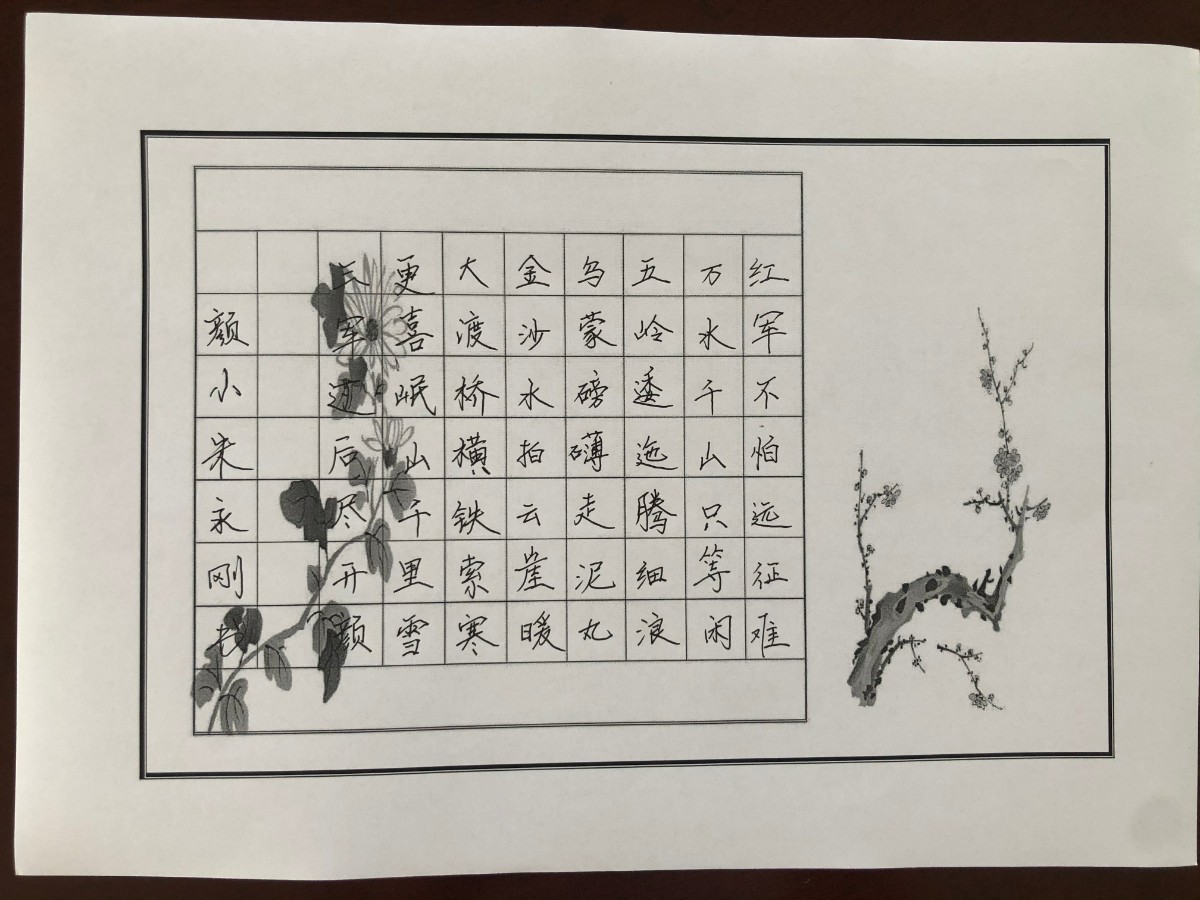 红军不怕远征难
万水千山只等闲
五岭逶迤腾细浪
乌蒙磅礴走泥丸
金沙水拍云崖暖
大渡桥横铁索寒
更喜岷山千里雪
三军过后尽开颜
颜小朱永刚书